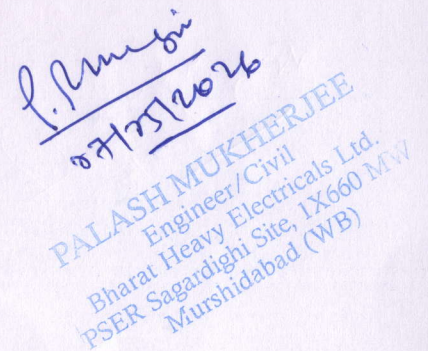 07/05/2026
PALASH MUKHERJEE
Engineer/Civil
Bharat Heavy Electricals Ltd.
PSER Sagardighi Site, 1X660 MW
Murshidabad (WB)